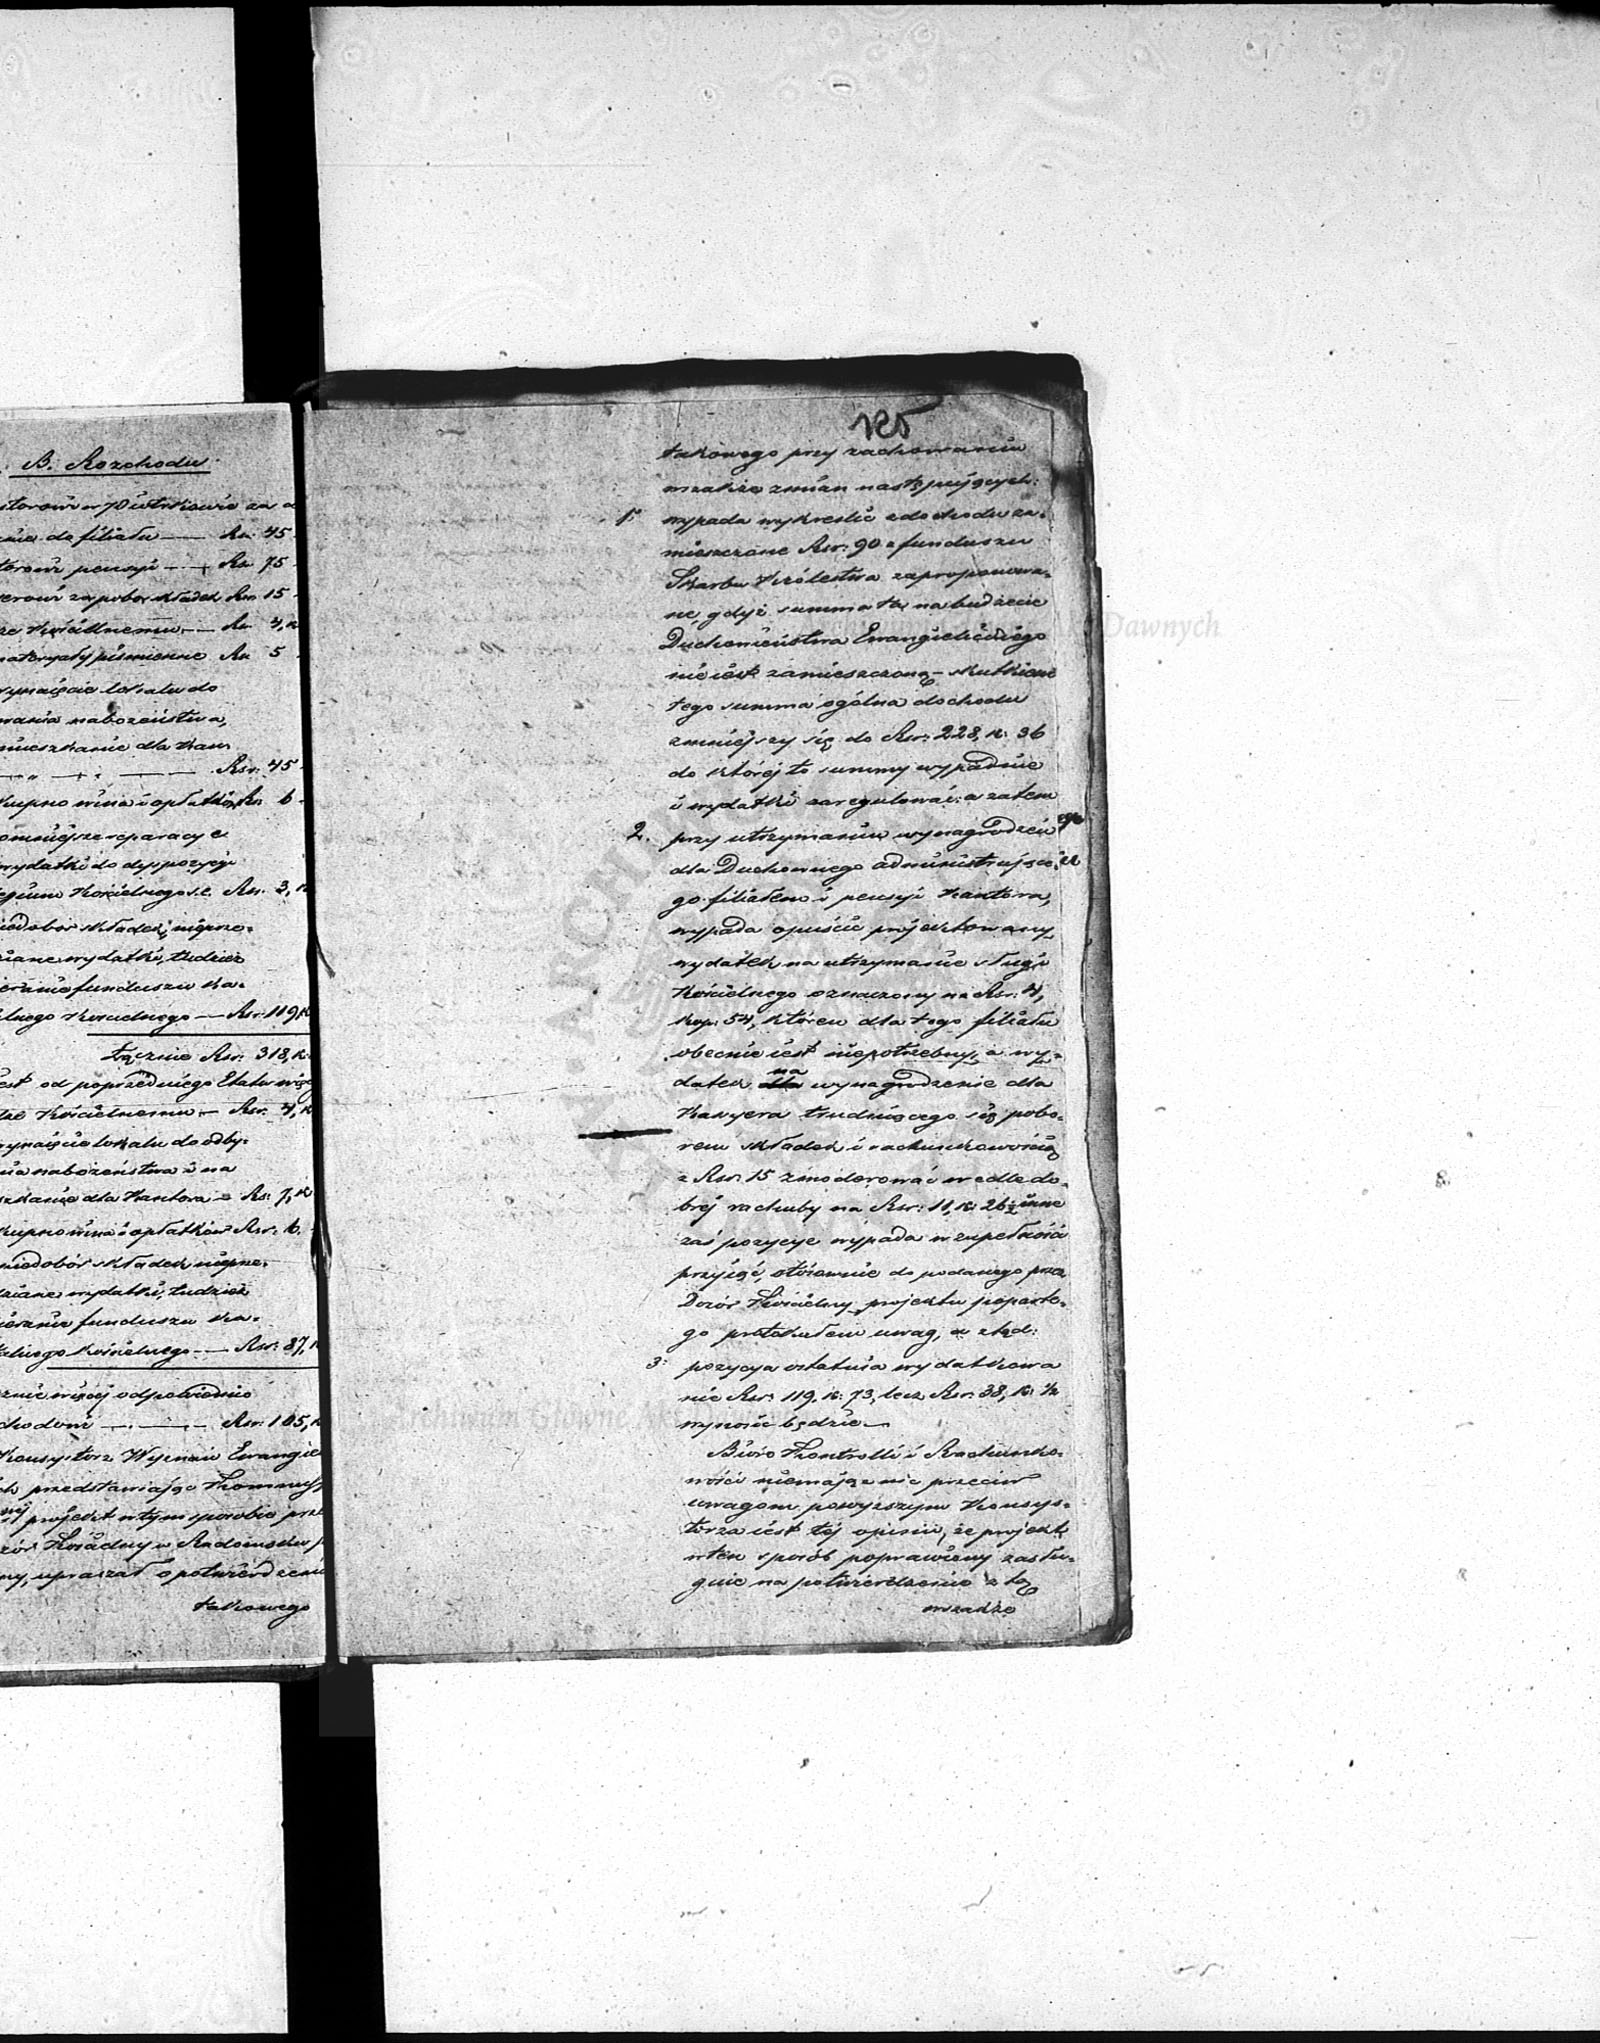 B. Rozchodu
storowi w Piotrkowie za
do filiału — Rsr. 45
torowi pensyi — Rsr. 75
erowi za pobor składek Rsr. 15
dze Kościelnemu — Rsr. 4, k
materyały piśmienne Rsr. 5
wynajęcie lokalu do
wania nabożeństwa,
mieszkanie dla Kan
Rsr. 45
Kupno wina i opłatków Rsr. 6
pomniejsze reparacye
wydatki do dyspozycyi
legium Kościelnego s.e. Rsr. 3, k
niedobór składek, nieprze-
ziane wydatki, tudzież
ieranie funduszu ka-
alnego Kościelnego — Rsr. 119, k
Łącznie Rsr. 318, k.
jest od poprzedniego Etatu więcej
dze Kościelnemu — Rsr. 4, k
wynajęcie lokalu do odby-
nia nabożeństwa i na
szkanie dla Kantora — Rs. 7, k
Kupno wina i opłatków Rsr. 6.
niedobór składek nieprze-
dziane wydatki, tudzież
ieranie funduszu ka-
talnego Kościelnego — Rsr. 87, k
znie więcej odpowiednio
chodowi — Rsr. 105, k
Konsystorz Wyznań Ewangie
ch przedstawiając Kommiss
projekt w tym sposobie prze
zór Kościelny w Radomsku
ny, upraszał o potwierdzenie
takowego
125
takowego przy zachowaniu
wszakże zmian następujących:
1. wypada wykreślić z dochodu za-
mieszczone Rsr. 90 z funduszu
Skarbu Królestwa zaproponowa-
ne, gdyż summa ta na budżecie
Duchowieństwa Ewangielickiego
nie iest zamieszczoną — skutkiem
tego summa ogólna dochodu
zmniejszy się do Rsr. 228, k. 36
do którój to summy wypadnie
i wydatki zaregulować: a zatem
2. przy utrzymaniu wynagrodzenia
dla Duchownego administrujące-
go filiałem i pensyi Kantora,
wypada opuścić projektowany
wydatek na utrzymanie sługi
Kościelnego oznaczony na Rsr. 4,
kop. 54, któren dla tego filiału
obecnie iest niepotrzebny, a wy-
na
datek dla wynagrodzenie dla
Kassyera trudniącego się pobo-
rem składek i rachunkowością
z Rsr. 15 zmoderować wedle do-
brej rachuby na Rsr. 11, k. 26½ inne
zaś pozycye wypada w zupełności
przyjąć, stósownie do podanego przez
Dozór Kościelny projektu poparte-
go protokułem uwag, a ztąd:
3. pozycya ostatnia wydatkowa
nie Rsr. 119, k. 73, lecz Rsr. 38, k. ½
wynosić będzie —
Biuro Kontrolli i Rachunko-
wości niemając nic przeciw
uwagom powyższym Konsys-
torza iest téj opinii, że projekt
w ten sposób poprawiony zasłu-
guie na potwierdzenie z tą
wszakże